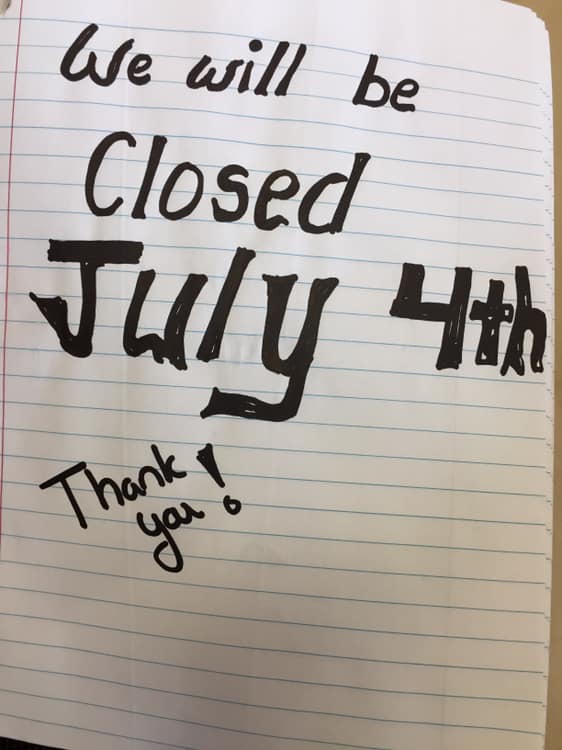 We will be
Closed
July 4th
Thank
you!